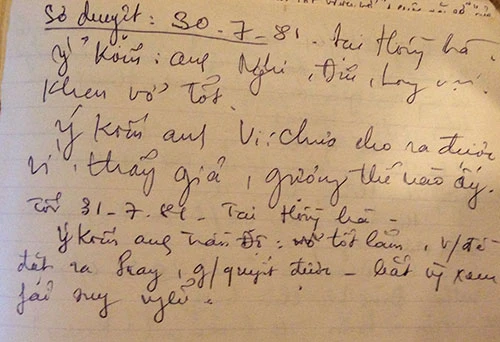 Sơ duyệt: 30-7-81. Tại Hồng hà.
Ý kiến: anh Nghi, 
Khen vở Tốt.
Ý kiến anh Vi: chưa cho ra được
vì, thấy giả, gượng thế nào ấy.
Tối 31-7-81- Tại Hồng hà -
Ý kiến anh trần Độ: vở tốt lắm, v/đề
đặt ra hay, g/quyết được - bắt ng xem
fải suy nghĩ.